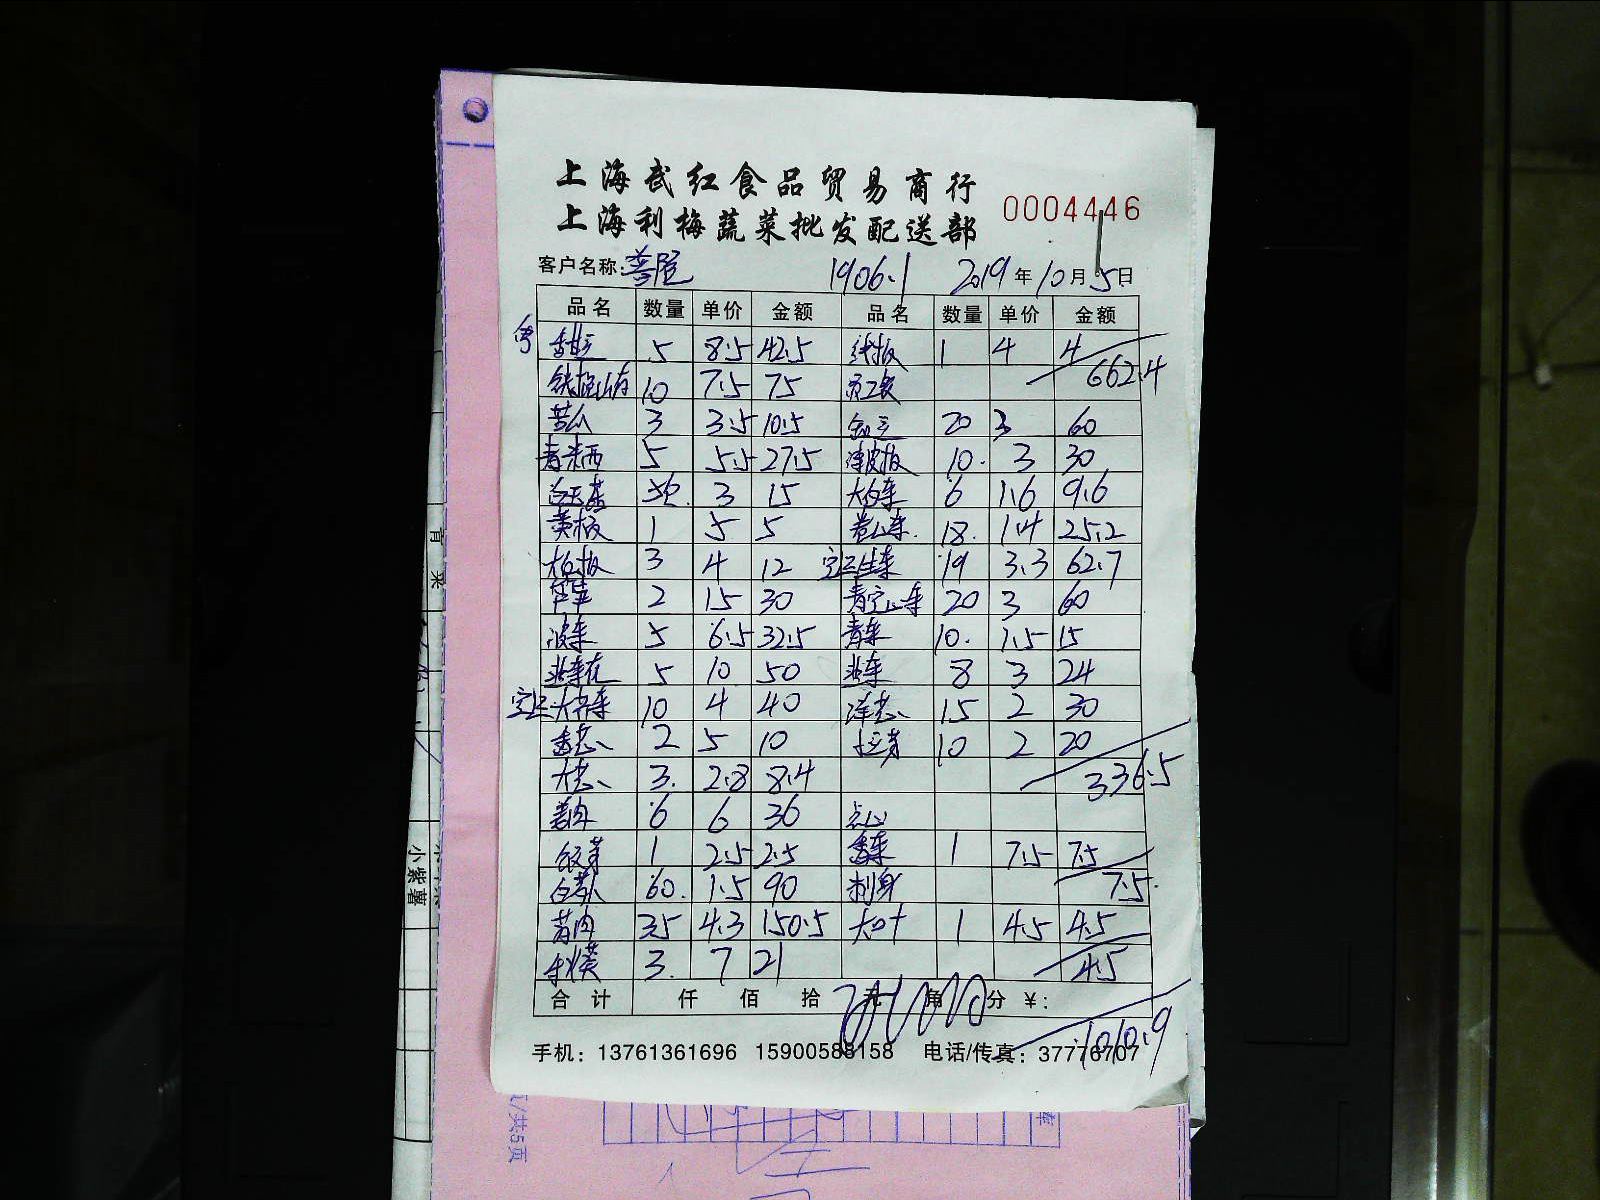 上海武红食品贸易商行
上海利梅蔬菜批发配送部
0004446
客户名称: 1906.1 2019年10月5日
品名 数量 单价 金额 品名 数量 单价 金额
5 8.5 42.5 1 4 4
铁棍山药 10 7.5 75 662.4
苦瓜 3 3.5 10.5 20 3 60
5 5.5 27.5 10. 3 30
3 15 大白菜 6 1.6 9.6
黄椒 1 5 5 卷心菜. 18. 1.4 25.2
3 4 12 19 3.3 62.7
2 15 30 青空心菜 20 3 60
菠菜 5 6.5 32.5 青菜 10. 1.5 15
韭菜花 5 10 50 韭菜 8 3 24
10 4 40 洋葱 15 2 30
香葱 2 5 10 10 2 20
大葱 3. 2.8 8.4 336.5
姜肉 6 6 36 点心
1 2.5 2.5 香菜 1 7.5 7.5
白萝卜 60. 1.5 90 刺身 7.5
35 4.3 150.5 大叶 1 4.5 4.5
3. 7 21 4.5
合计 仟 佰 拾 元 角 分 ¥:
1010.9
手机: 13761361696 15900588158 电话/传真: 37776707
小紫薯
页/共5页